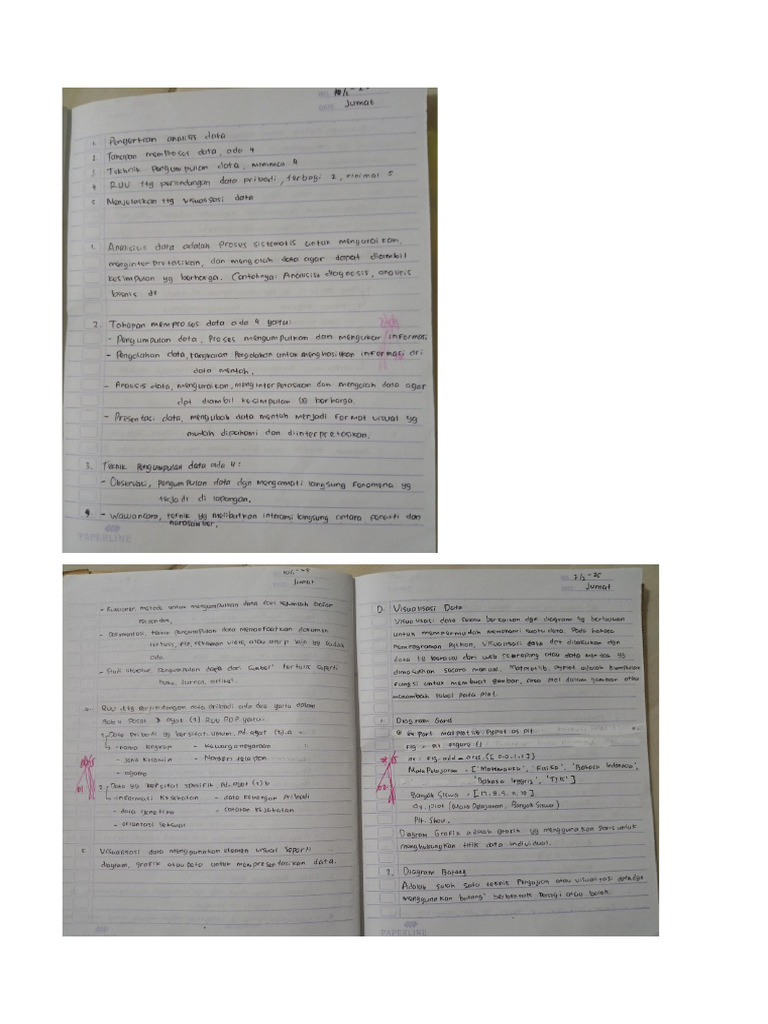 Jumat
1. Pengertian analisis data
2. Tahapan memproses data, ada 4
3. Tekhnik Pengumpulan data, minimal 4
4. RUU ttg perlindungan data pribadi, terbagi 2, minimal 5
5. Menjelaskan ttg visualisasi data
1. Analisis data adalah proses sistematis untuk menguraikan,
menginterpretasikan, dan mengolah data agar dapat diambil
kesimpulan yg berharga. Contohnya: Analisis diagnosis, analisis
bisnis
2. Tahapan memproses data ada 4 yaitu:
- Pengumpulan data, Proses mengumpulkan dan mengukur informasi
- Pengolahan data, rangkaian pengolahan untuk menghasilkan informasi dri
data mentah.
- Analisis data, menguraikan, menginterpretasikan dan mengolah data agar
dpt diambil kesimpulan yg berharga.
- Presentasi data, mengubah data mentah menjadi format visual yg
mudah dipahami dan diinterpretasikan.
3. Teknik Pengumpulan data ada 4:
- Observasi, pengumpulan data dgn mengamati langsung fenomena yg
terjadi di lapangan.
- Wawancara, teknik yg melibatkan interaksi langsung antara peneliti dan
narasumber.
PAPERLINE
Jumat
- Kuesioner, metode untuk mengumpulkan data dari sejumlah besar
responden,
- Dokumentasi, teknik pengumpulan data memanfaatkan dokumen
tertulis, rekaman video, atau arsip lain yg sudah
ada.
- Studi literatur, pengumpulan data dari sumber" tertulis seperti
buku, jurnal, artikel.
4. RUU ttg Perlindungan data pribadi ada dua yaitu dalam
ayat (1) RUU PDP yaitu:
1. Data Pribadi yg bersifat umum, Pd. ayat (1).a
- nama lengkap - Kewarganegaraan
- Jenis Kelamin - Nomor telepon
- agama
2. Data yg bersifat spesifik Pd. ayat (1) b
- informasi Kesehatan - data keuangan pribadi
- data genetika - catatan kejahatan
- orientasi seksual
5. Visualisasi data menggunakan elemen visual seperti
diagram, grafik atau peta untuk mempresentasikan data.
PAPERLINE
7/2-25
Jumat
D. Visualisasi Data
Visualisasi data berkaitan dgn diagram yg bertujuan
untuk mempermudah memahami suatu data. Pada bahasa
pemrograman Python, visualisasi data dpt dilakukan dgn
data yg berasal dari web scraping atau data yg
dimasukkan secara manual. Matplotlib. pyplot adalah kumpulan
fungsi untuk membuat gambar, area plot dalam gambar atau
menambah label pada plot.
1. Diagram Garis
import matplotlib. Pyplot as plt.
fig = plt. figure ()
ax = fig. add = axes. ([0.0.1.1])
Mata Pelajaran = ['Matematika', 'Fisika', 'Bahasa Indonesia',
'Bahasa Inggris', 'TIK']
Banyak Siswa =
ax. plot (Mata Pelajaran, Banyak Siswa)
Plt. Show.
Diagram Grafik adalah grafik yg menggunakan garis untuk
menghubungkan titik data individual.
2. Diagram Batang
Adalah salah satu teknis Penyajian atau visualisasi data dgn
menggunakan batang" berbentuk persegi atau balok.
PAPERLINE